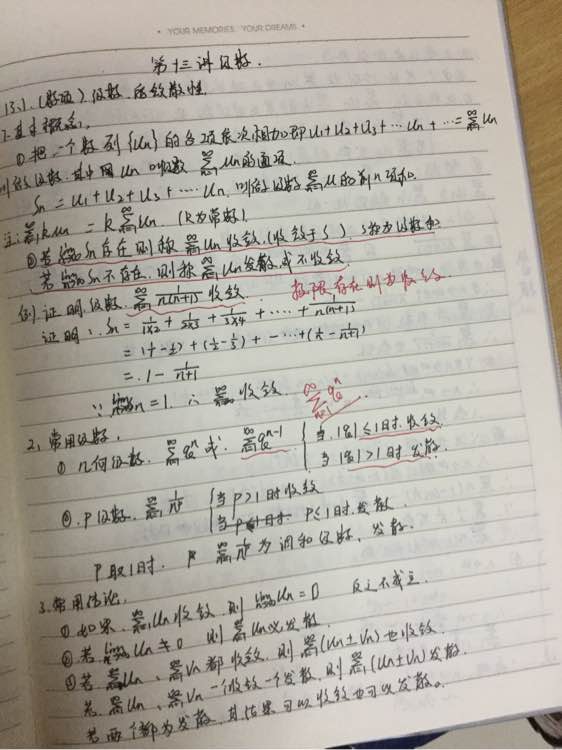 • YOUR MEMORIES YOUR DREAMS •
第十三讲 级数.
13.1.(数项)级数 及敛散性
1.基本概念.
①把一个数列{Un}的各项依次相加即U1+U2+U3+…Un+…=∞∑n=1 Un
叫做级数.其中用Un叫级数 ∞∑n=1 Un的通项.
Sn = U1+U2+U3+…. Un, 叫做级数 ∞∑n=1 U的前n项和.
注: ∞∑n=1 kUn = k ∞∑n=1 Un. (k为常数).
②若 lim n→∞ Sn存在 则称 ∞∑n=1 Un收敛.(收敛于S). S称为级数和
若 lim n→∞ Sn不存在, 则称 ∞∑n=1 Un发散或不收敛.
例.证明.级数 ∞∑n=1 1/n(n+1) 收敛. 极限存在则为收敛
证明: Sn = 1/1×2 + 1/2×3 + 1/3×4 + …. + 1/n(n+1)
= (1-1/2)+(1/2-1/3)+ -…+(1/n-1/n+1)
= 1 - 1/n+1
∵ lim n→∞ Sn=1. ∴ ∞∑n=1 收敛. ∞∑n=1 q^n
2. 常用级数.
① 几何级数. ∞∑n=1 q^n 或. ∞∑n=1 q^n-1 { 当.|q|≤1时.收敛
当|q|>1时.发散.
②.P级数. ∞∑n=1 1/n^P { 当P>1时收敛
当 P≤1时.发散.
P取1时. ∞∑n=1 1/n^P 为调和级数、发散.
3.常用结论.
①如果. ∞∑n=1 Un收敛. 则 lim n→∞ Un=0 反之不成立.
②若. lim n→∞ Un≠0 则 ∞∑n=1 Un必发散.
③若 ∞∑n=1 Un、∞∑n=1 Vn都收敛. 则 ∞∑n=1 (Un±Vn)也收敛.
若. ∞∑n=1 Un、∞∑n=1 Vn一收敛一个发散.则 ∞∑n=1 (Un±Vn)发散.
若两个都为发散.其结果可以收敛也可以发散。